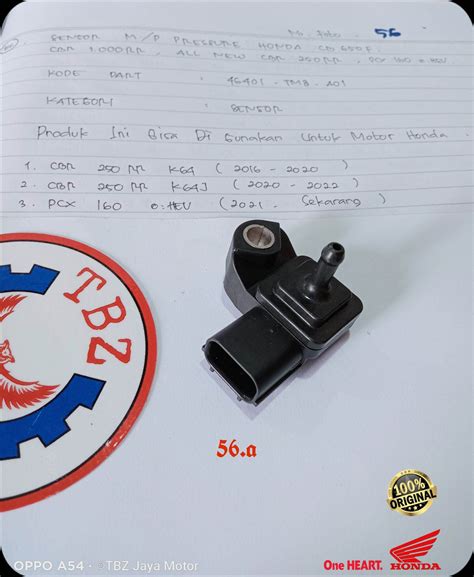 No. foto . 56
SENSOR M/P PRESSURE HONDA CB 650F,
CBR 1.000RR , ALL NEW CBR 250RR , PCX 160 e:HEV
KODE PART :
KATEGORI : SENSOR
Produk Ini Bisa Di Gunakan Untuk Motor Honda
1. CBR 250 RR K64 ( 2016 - 2020 )
2. CBR 250 RR K64J ( 2020 - 2022 )
3. PCX 160 e:HEV ( 2021 - Sekarang )
TBZ
56.a
100%
ORIGINAL
OPPO A54 · TBZ Jaya Motor
One HEART. HONDA